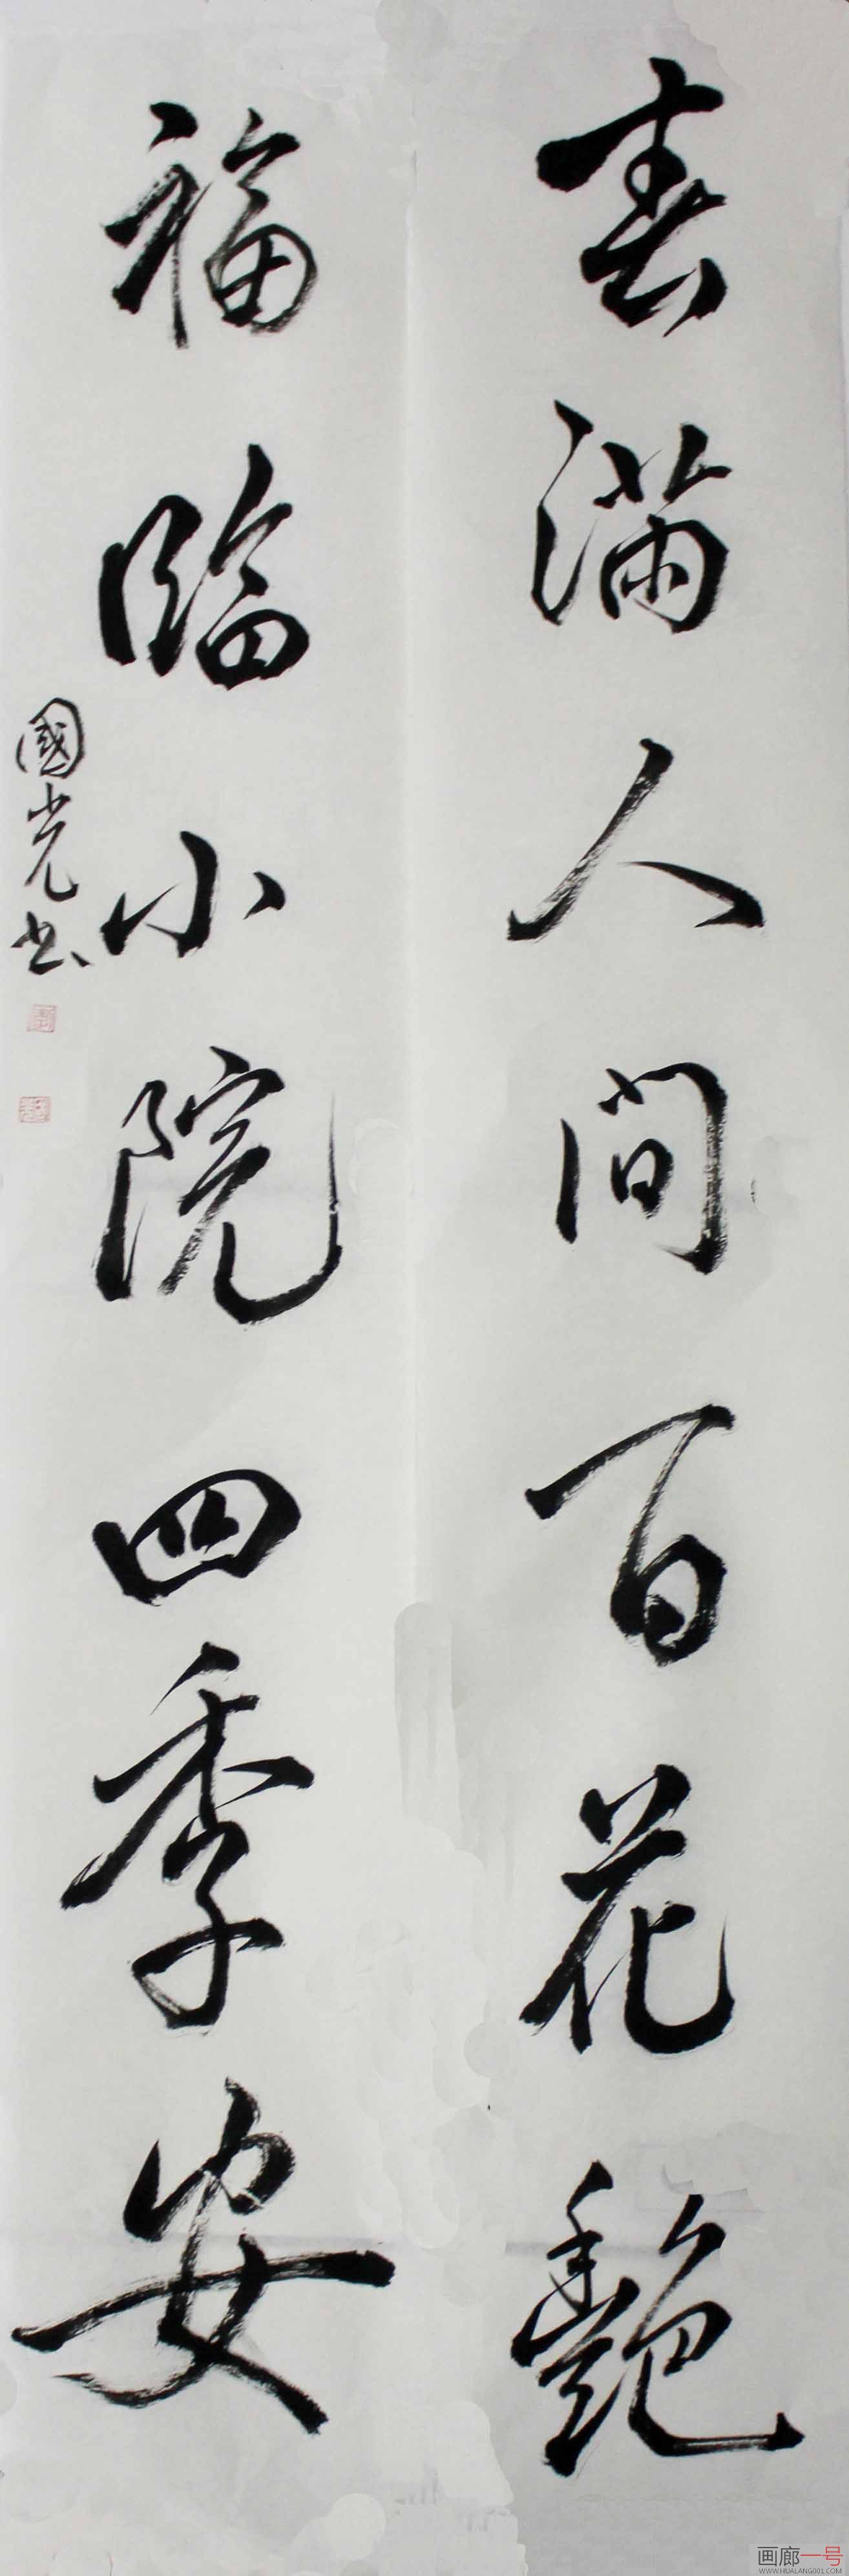 春满人间百花艳
福临小院四季安
國光书
画廊一号
WWW.HUALANG001.COM